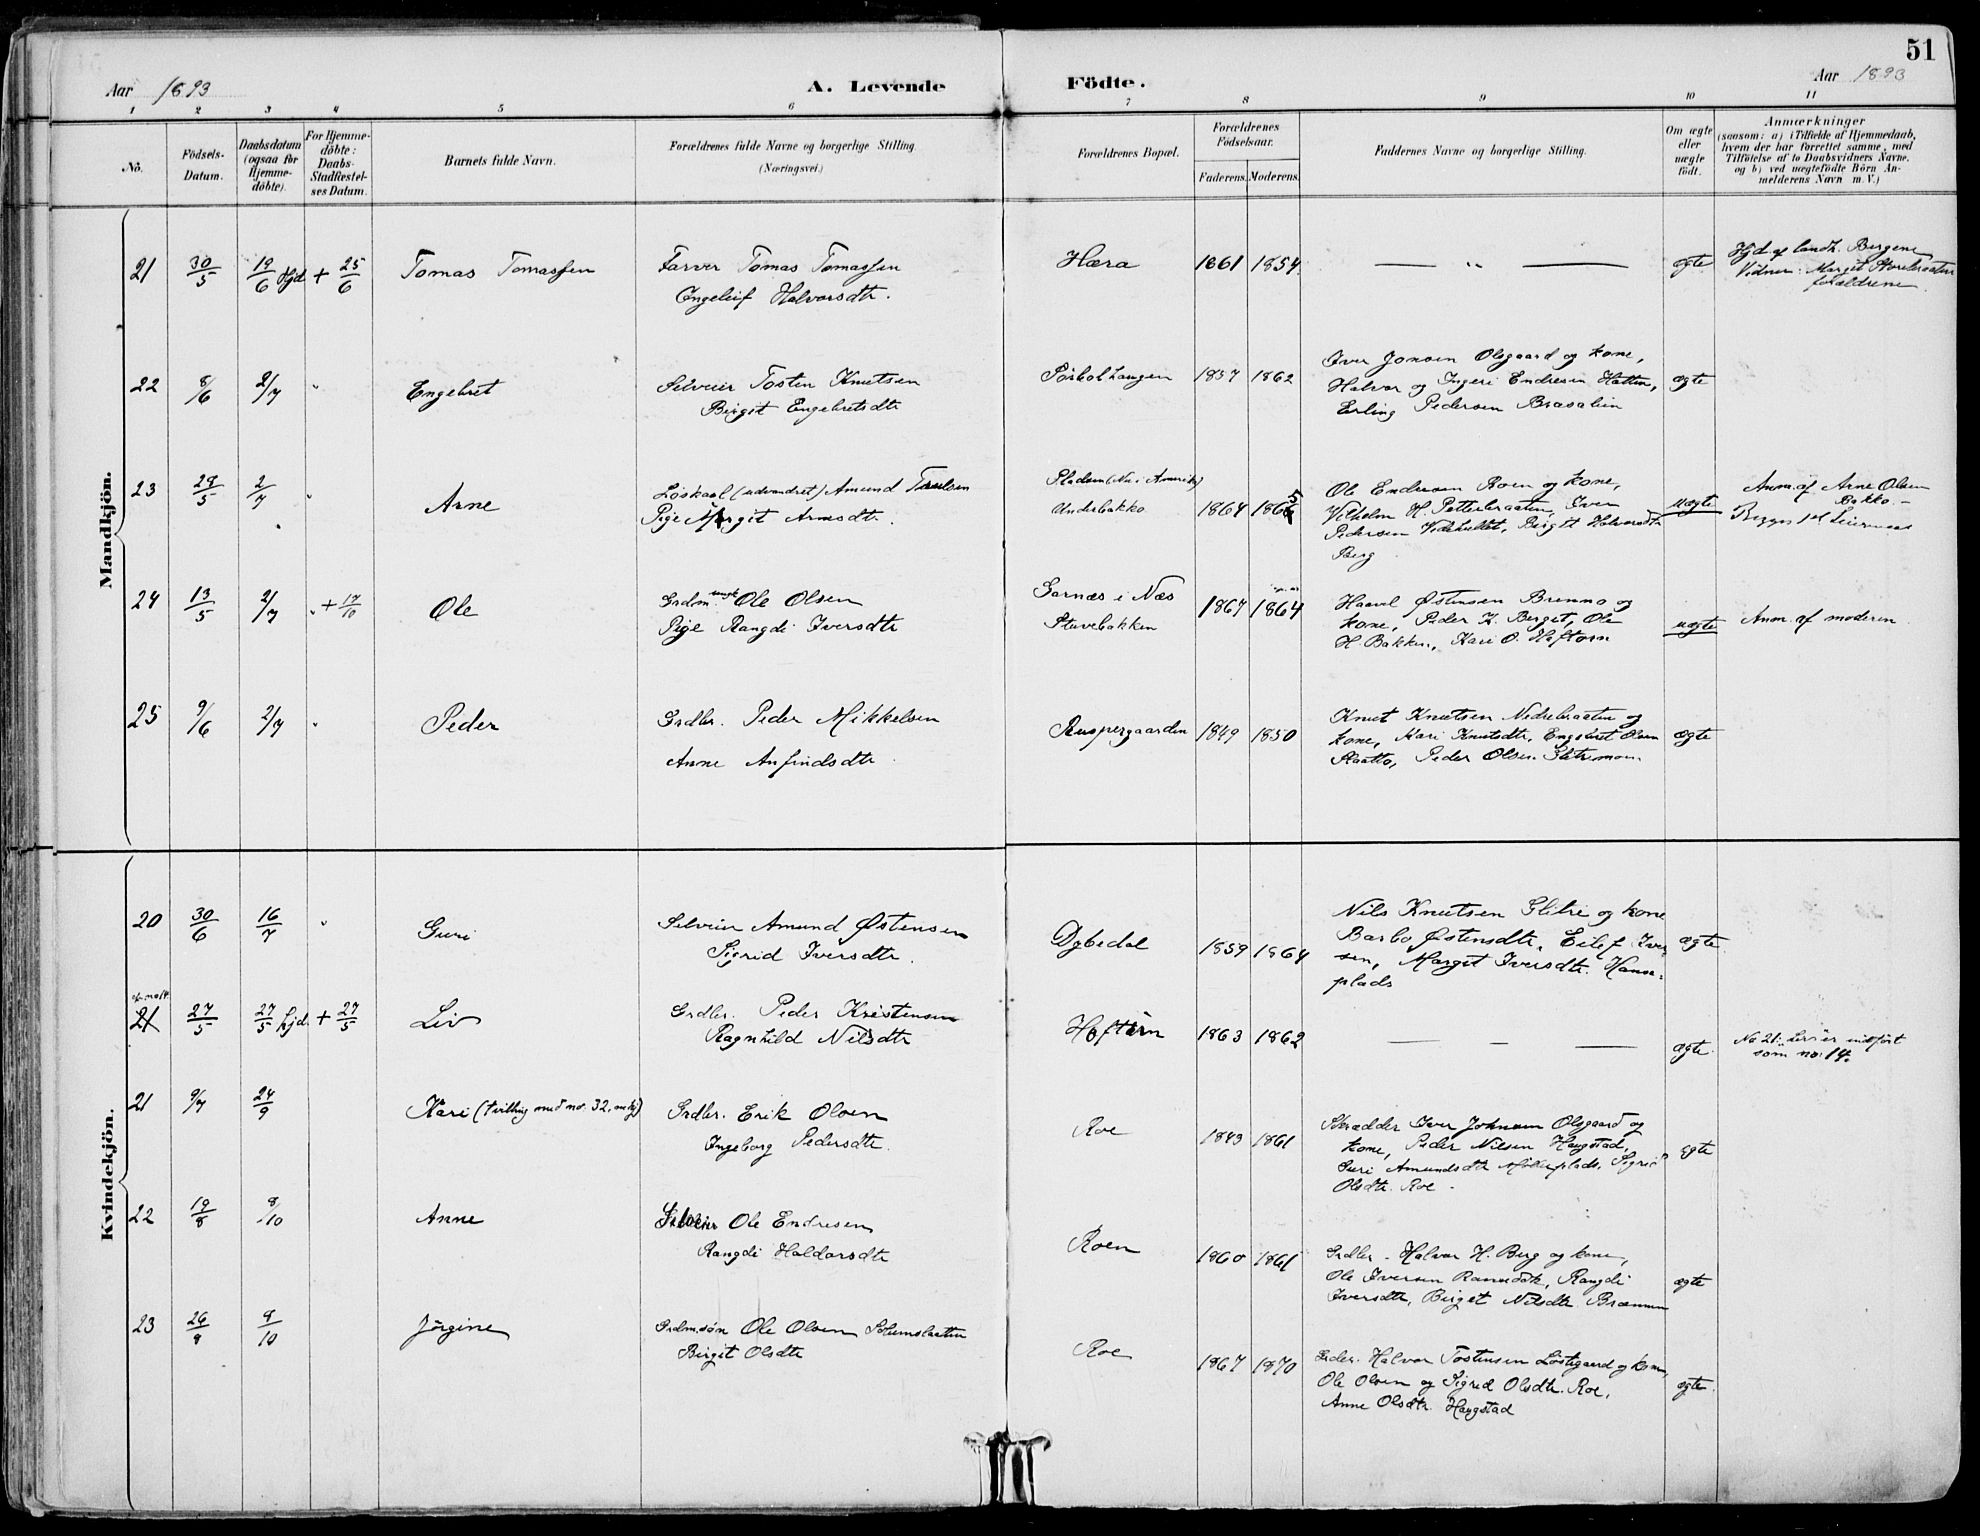 51
Aar 1893
A. Levende Födte.
Aar 1893
1 2 3 4 5 6 7 8 9 10 11
No.
Födsels-Datum.
Daabsdatum (ogsaa for Hjemme-döbte).
For Hjemme-döbte: Daabs-Stadfæstel-ses Datum.
Barnets fulde Navn.
Forældrenes fulde Navne og borgerlige Stilling.
(Næringsvei.)
Forældrenes Bopæl.
Forældrenes Födselsaar.
Faderens. Moderens.
Faddernes Navne og borgerlige Stilling.
Om ægte eller uægte födt.
Anmærkninger
(saasom: a) i Tilfælde af Hjemmedaab,
hvem der har forrettet samme, med
Tilföielse af to Daabsvidners Navne.
og b) ved uægtefödte Börn An-
melderens Navn m. V.)
Mandkjön.
21 30/5 19/6 Hjd + 25/6 Tomas Tomassen
Farver Tomas Tomassen
Ingeleif Halvorsdtr.
Hæra 1861 1854 — " — ægte
Hjd af landh. Bergene
Vidner: Margit Storebraaten
forældrene
22 8/6 2/7 " Engebret
Selveier Tosten Knutsen
Birgit Engebretsdtr
1857 1862
Iver Jonsen Olsgaard og kone,
Halvor og Ingeri Endresen Hatten,
Erling Pedersen Brasalien
ægte
23 29/5 2/7 " Arne
Löskarl (udvandret) Amund Truelsen
Pige Margit Arnesdtr.
Pladsen (Nu i Amerika)
Underbakko 1864 1865
Ole Endresen Roen og kone,
Vilhelm H. Petterbraaten, Iver
Pedersen Videhultet, Birgit Halvorsdtr
Berg
uægte
Anm. af Arne Olsen
Bakko.—
Begges 1ste Leiermaal
24 13/5 2/7 " + 17/10 Ole
Grdm. ungk Ole Olsen
Pige Rangdi Iversdtr
Garnæs i Næs
Stuvebakken
1867 1864
Haavel Østensen Brenno og
kone, Peder K. Berget, Ole
H. Bakken, Kari O. Haftorn
uægte
Anm. af moderen
25 9/6 2/7 " Peder
Grdbr. Peder Mikkelsen
Anne Anfindsdtr
Ruspergaarden 1849 1850
Knut Knutsen Nedrebraaten og
kone, Kari Knutsdtr, Engebret Olsen
Slaatto, Peder Olsen
ægte
Kvindekjön.
20 30/6 16/7 " Guri
Selveier Amund Østensen
Sigrid Iversdtr.
Dybedal 1859 1864
Nils Knutsen Glitre og kone
Barbo Østensdtr, Eilef Iver-
sen, Marget Iversdtr. Hanse-
plads
ægte
21 27/5 27/5 hjd. + 27/5 Liv
Grdbr. Peder Kristensen
Ragnhild Nilsdtr
Haftorn 1863 1862 — — — ægte.
No 21: Liv er indført
som no: 14.
21 9/7 24/9 Kari (tvilling med no. 32, mkj)
Grdbr. Erik Olsen
Ingeborg Pedersdtr.
Roe 1843 1861
Skrædder Iver Johnsen Olsgaard og
kone, Peder Nilsen Haugstad,
Guri Amundsdtr Mölleplads, Sigrid
Olsdtr. Roe.
ægte
22 19/8 8/10 Anne
Selveier Ole Endresen
Rangdi Haldorsdtr
Roen 1860 1861
Grdbr. Halvor H. Berg og kone,
Ole Iversen Rameshk, Rangdi
Iversdtr, Birget Nilsdtr Brænnen
ægte
23 26/8 8/10 Jörgine
Grdm.sön Ole Olsen
Birgit Olsdtr
Roe 1867 1870
Grdbr. Halvor Tostensen Löstegaard og kone,
Ole Olsen og Sigrid Olsdtr. Roe,
Anne Olsdtr. Haugstad
ægte.